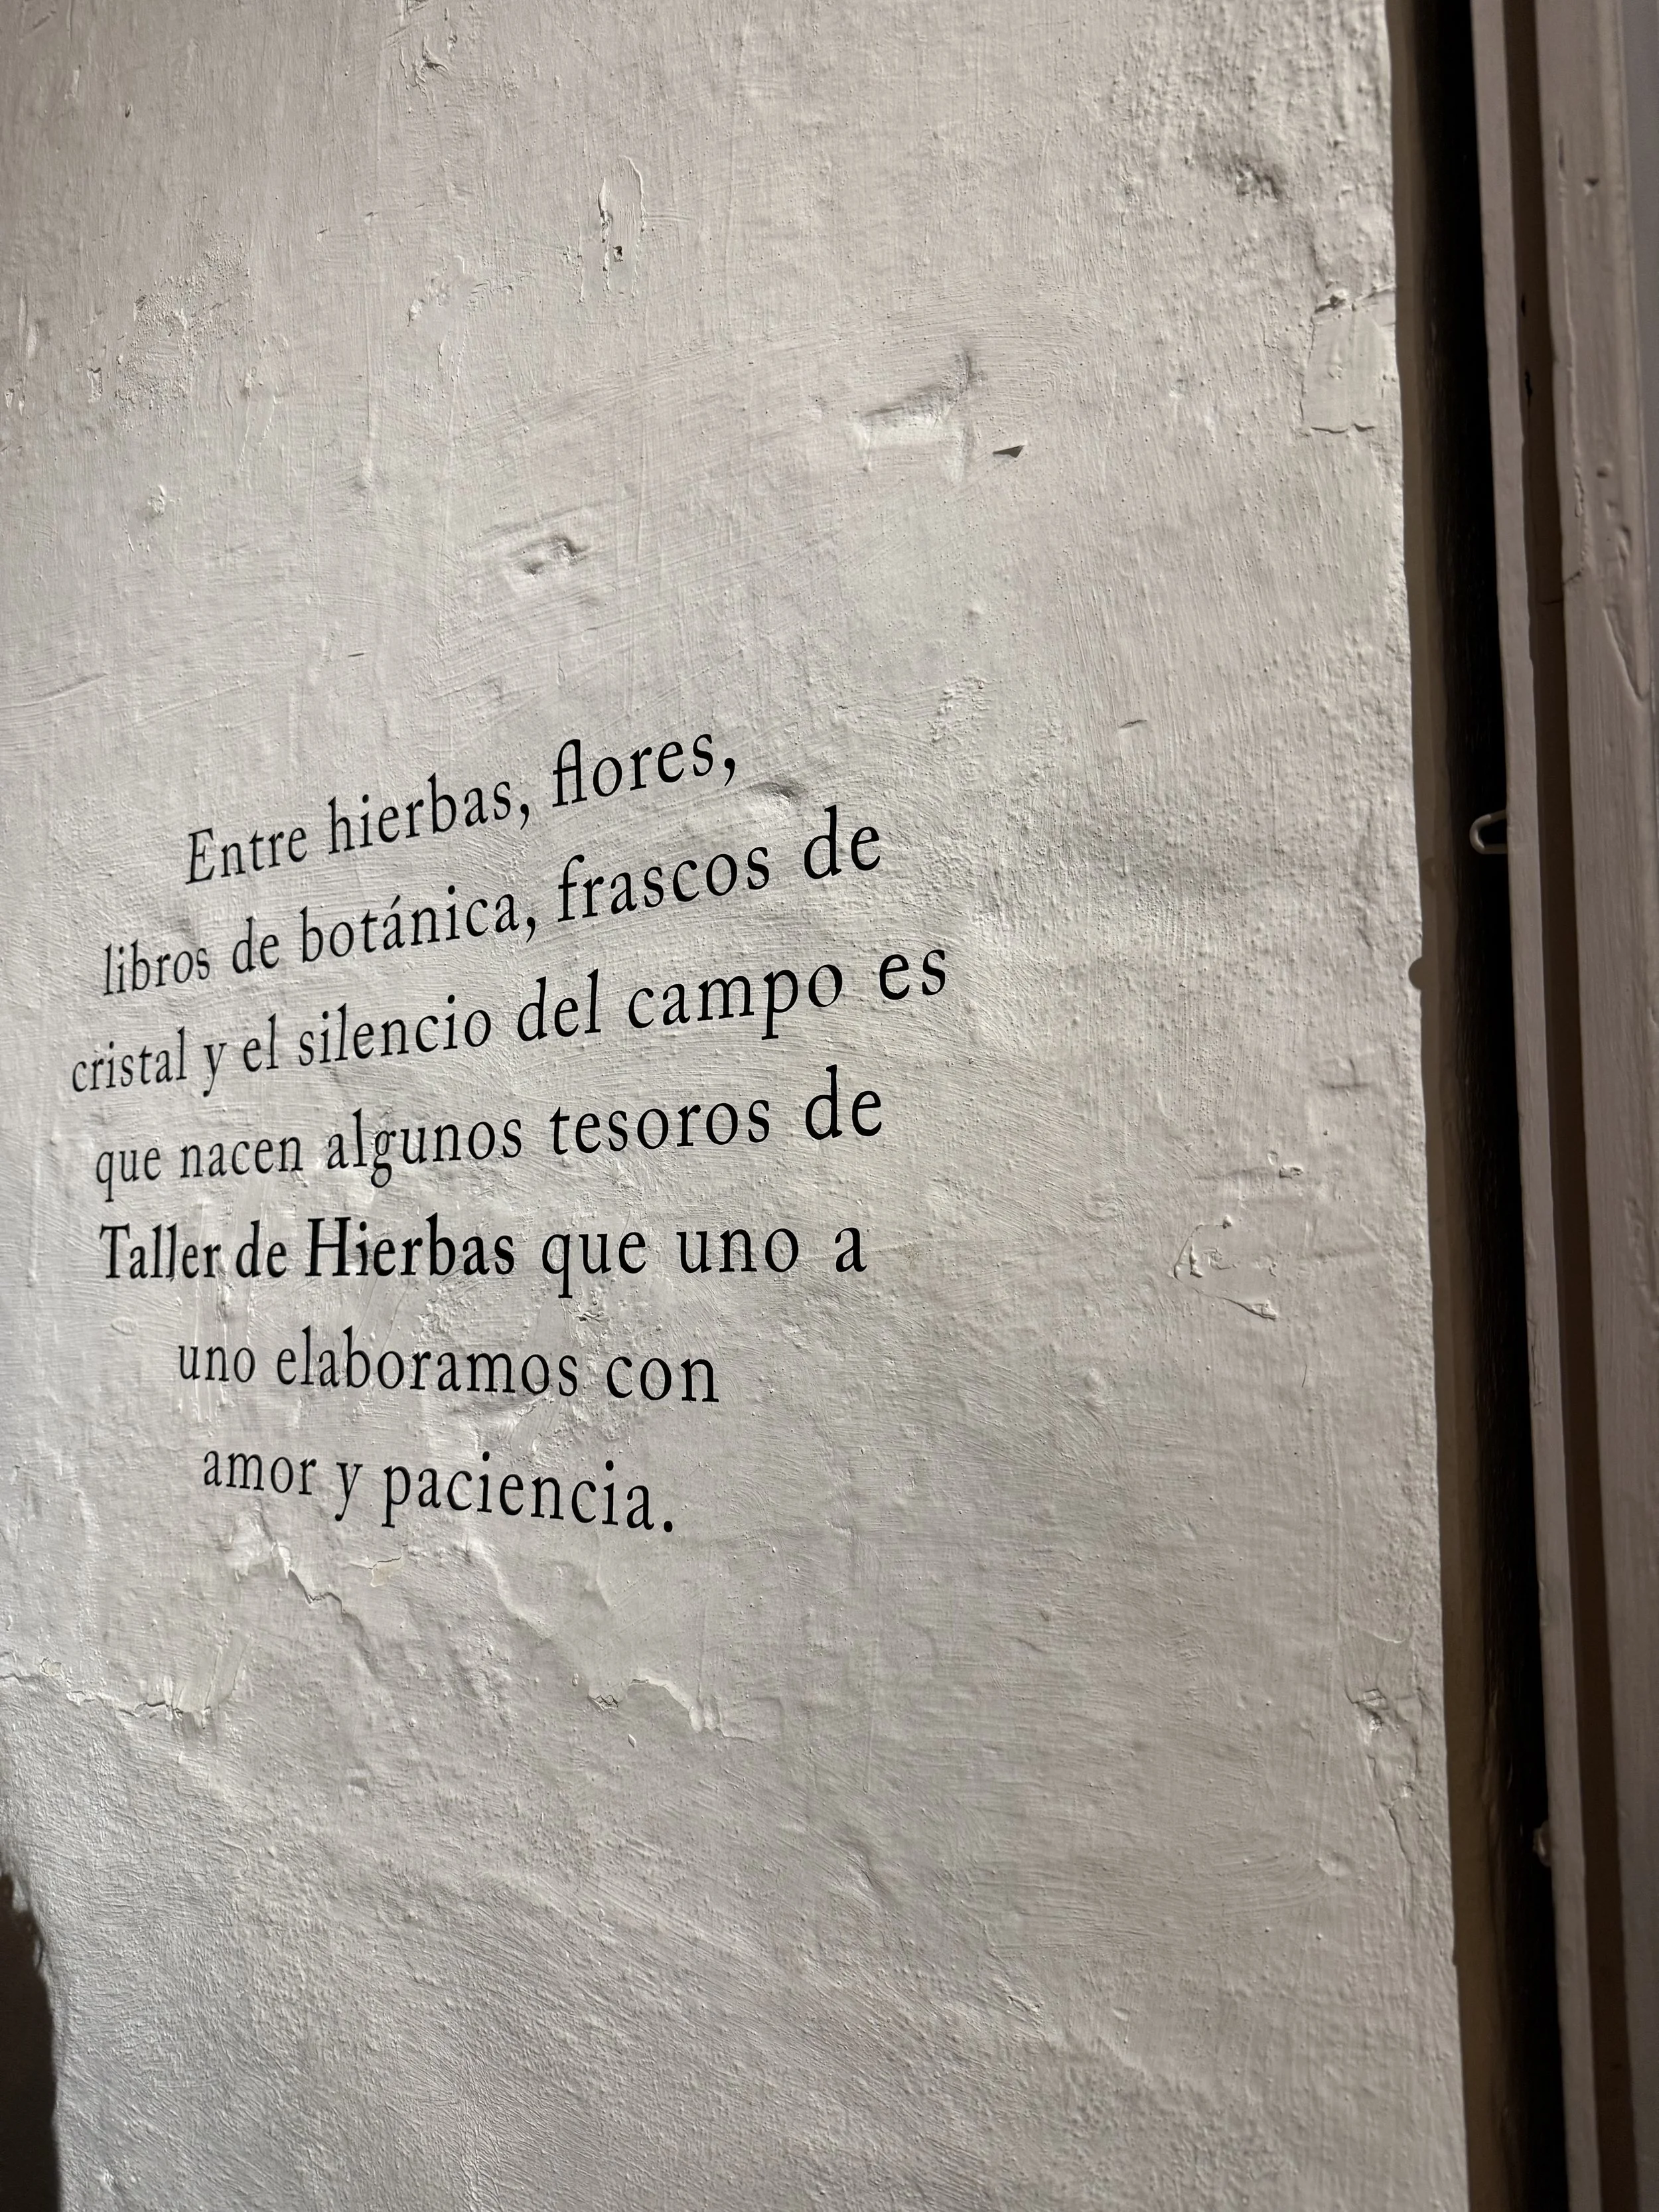 Entre hierbas, flores,
libros de botánica, frascos de
cristal y el silencio del campo es
que nacen algunos tesoros de
Taller de Hierbas que uno a
uno elaboramos con
amor y paciencia.